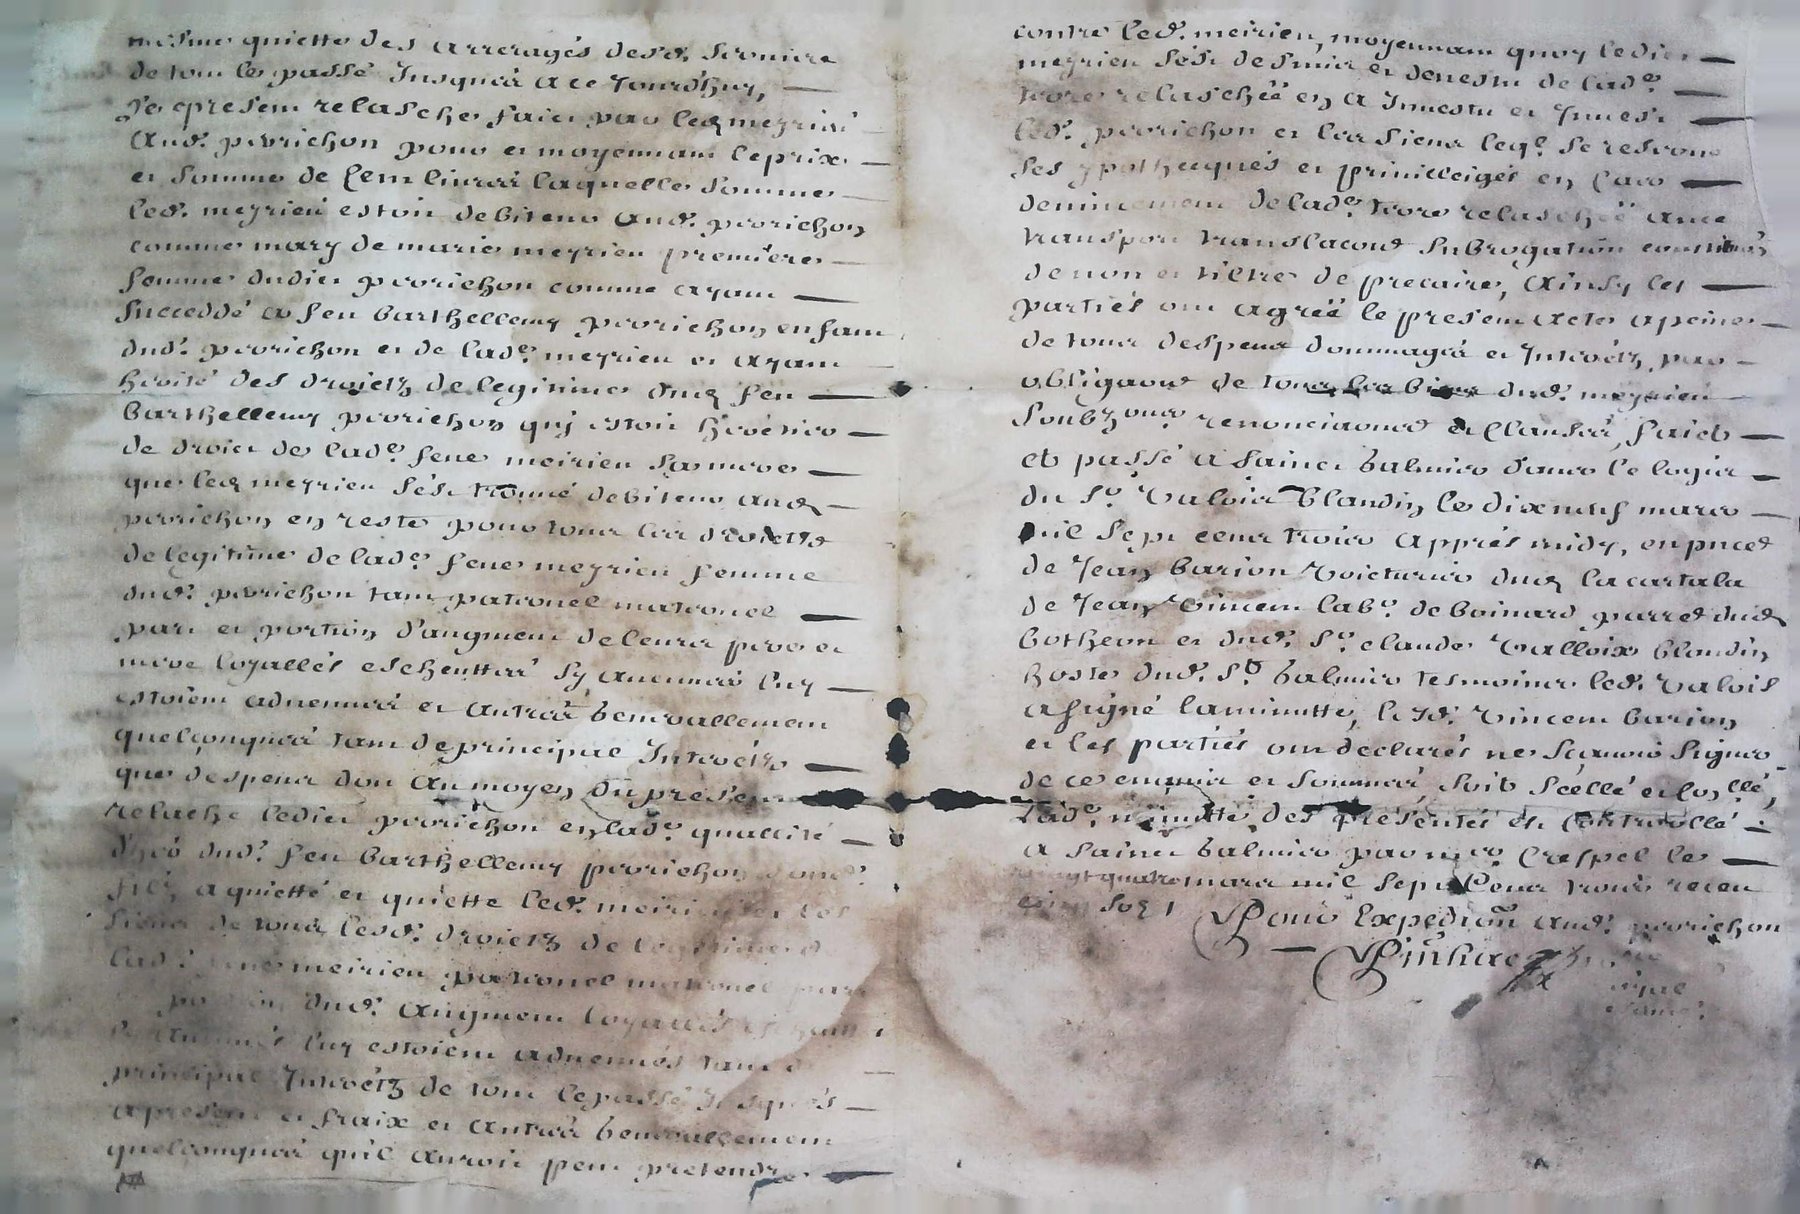 mesme quiette des arrerages desd. servicea
de tout le passé Jusques a ce Jourdhuy,
Le present relasche faict par led meyrieu
Aud. perrichon pour et moyennant le prix
et somme de Cent livres laquelle somme
led. meyrieu estoit debiteur Aud. perrichon
comme mary de marie meyrieu premiere
femme dudict perrichon comme ayant
succeddé a feu Barthellemy perrichon enfant
dud. perrichon et de lade. meyrieu et ayant
herité des droictz de legitime dud feu
Barthellemy perrichon quj estoit heretier
de droict de lade. feue meirieu sa mere
que led meyrieu s'est trouvé debiteur aud
perrichon en reste pour tous les droicts
de legitime de lade. feue meyrieu femme
dud. perrichon tant paternel maternel
part et portion d'augment de leurs pere et
mere loyalles escheuttes sy aucunes luy
estoient advenues et autres generallement
quelconques tant de principal Interets
que despens dont au moyen du present
relache ledict perrichon en lade. quallité
d'her dud. feu Barthellemy perrichon
filz a quietté et quiette led. meirieu et les
siens de tous lesd. droictz de legitime d
lad. feue meirieu paternel maternel part
portion dud. augment loyalles escheutt
sy aucunes luy estoient advenues tant d
principal Interetz de tout le passé Jusques
a present et fraix et autres generallement
quelconques qu'il auroit peut pretendre
contre led. meirieu, moyennant quoy ledict
meyrieu s'est desmis et devestu de lade.
terre relaschéé en a Investu et Invest
led. perrichon et les siens leql. se reserve
ses ypothecques et privilleiges en cas
de lade. terre relaschéé avec
transport translacons subrogation constitution
de non et tiltre de precaire, Ainsy les
parties ont agréé le present acte a peine
de tous despens dommages et Interetz, par
obligaons de tous les biens dud. meyrieu
soubz renonciaons et Clauses, faict
et passé a sainct Galmier dans le logis
du Sr. Valois Blandin le dixneuf mars
mil sept cent trois apprés midy, en pnce
de Jean Barjon voicturier dud la
de Jean Vincent labr. de Boinard parre dud
Botheon et dud. Sr. claude Valloix Blandin
hoste dud. St. Galmier tesmoins led. Valois
a signé la minutte, lesd. Vincent Barjon
et les parties ont declarés ne scavoir signer
de ce enquis et sommés, soit scellé et
lade. minutte des presentes est Controollé
a sainct Galmier par Crespel le
vingt quatre mars mil sept Cent trois receu
Pour Expedion Aud. perrichon